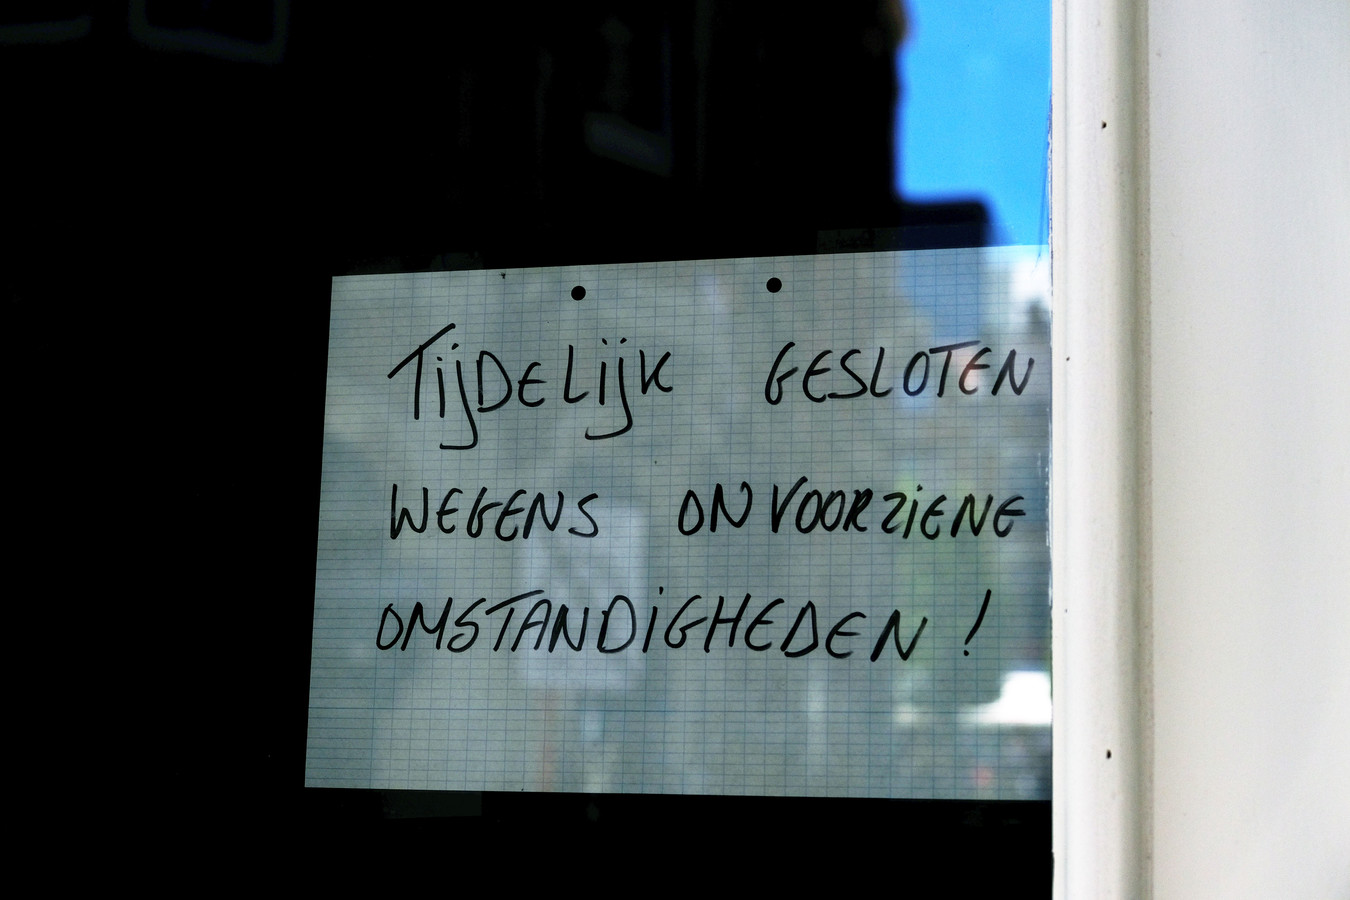 TijDELijK GESLOTEN
WEGENS ONVOORZiENE
OMSTANDiGHEDEN!